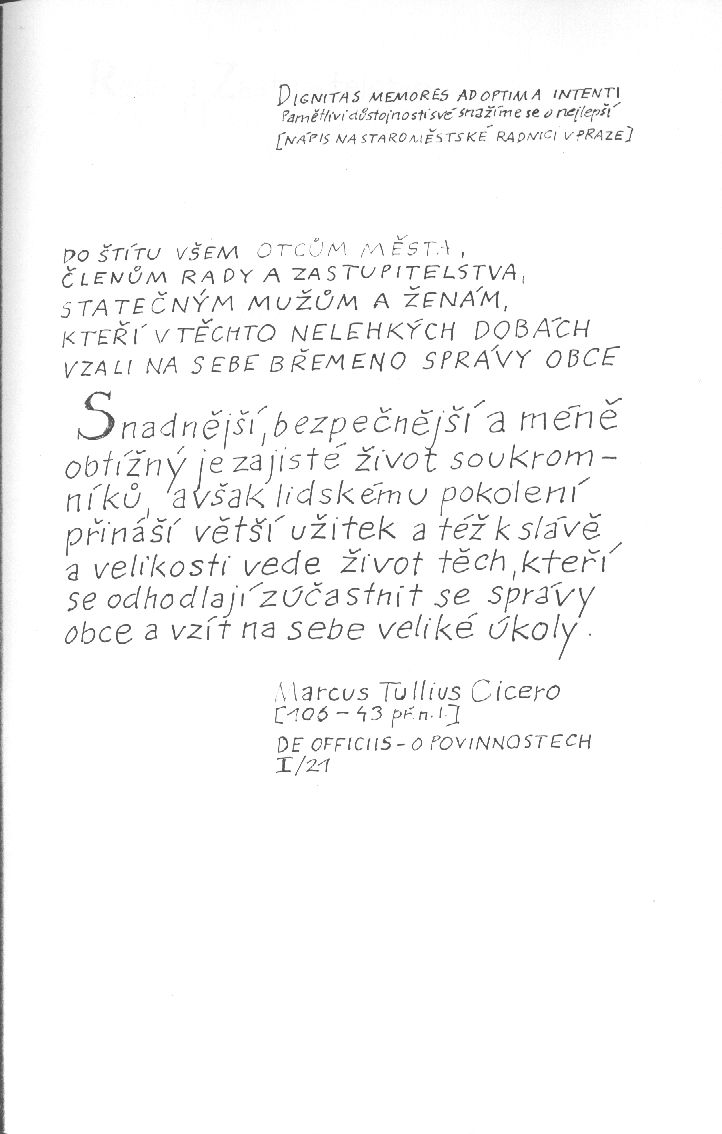 DIGNITAS MEMORES AD OPTIMA INTENTI
Pamětlivi důstojnosti své snažíme se o nejlepší
[NÁPIS NA STAROMĚSTSKÉ RADNICI V PRAZE]
DO ŠTÍTU VŠEM OTCŮM MĚSTA,
ČLENŮM RADY A ZASTUPITELSTVA,
STATEČNÝM MUŽŮM A ŽENÁM,
KTEŘÍ V TĚCHTO NELEHKÝCH DOBÁCH
VZALI NA SEBE BŘEMENO SPRÁVY OBCE
Snadnější, bezpečnější a méně
obtížný je zajisté život soukrom-
níků, avšak lidskému pokolení
přináší větší užitek a též k slávě
a velikosti vede život těch, kteří
se odhodlají zúčastnit se správy
obce a vzít na sebe veliké úkoly.
Marcus Tullius Cicero
[106 – 43 př. n. l.]
DE OFFICIIS – O POVINNOSTECH
I/21